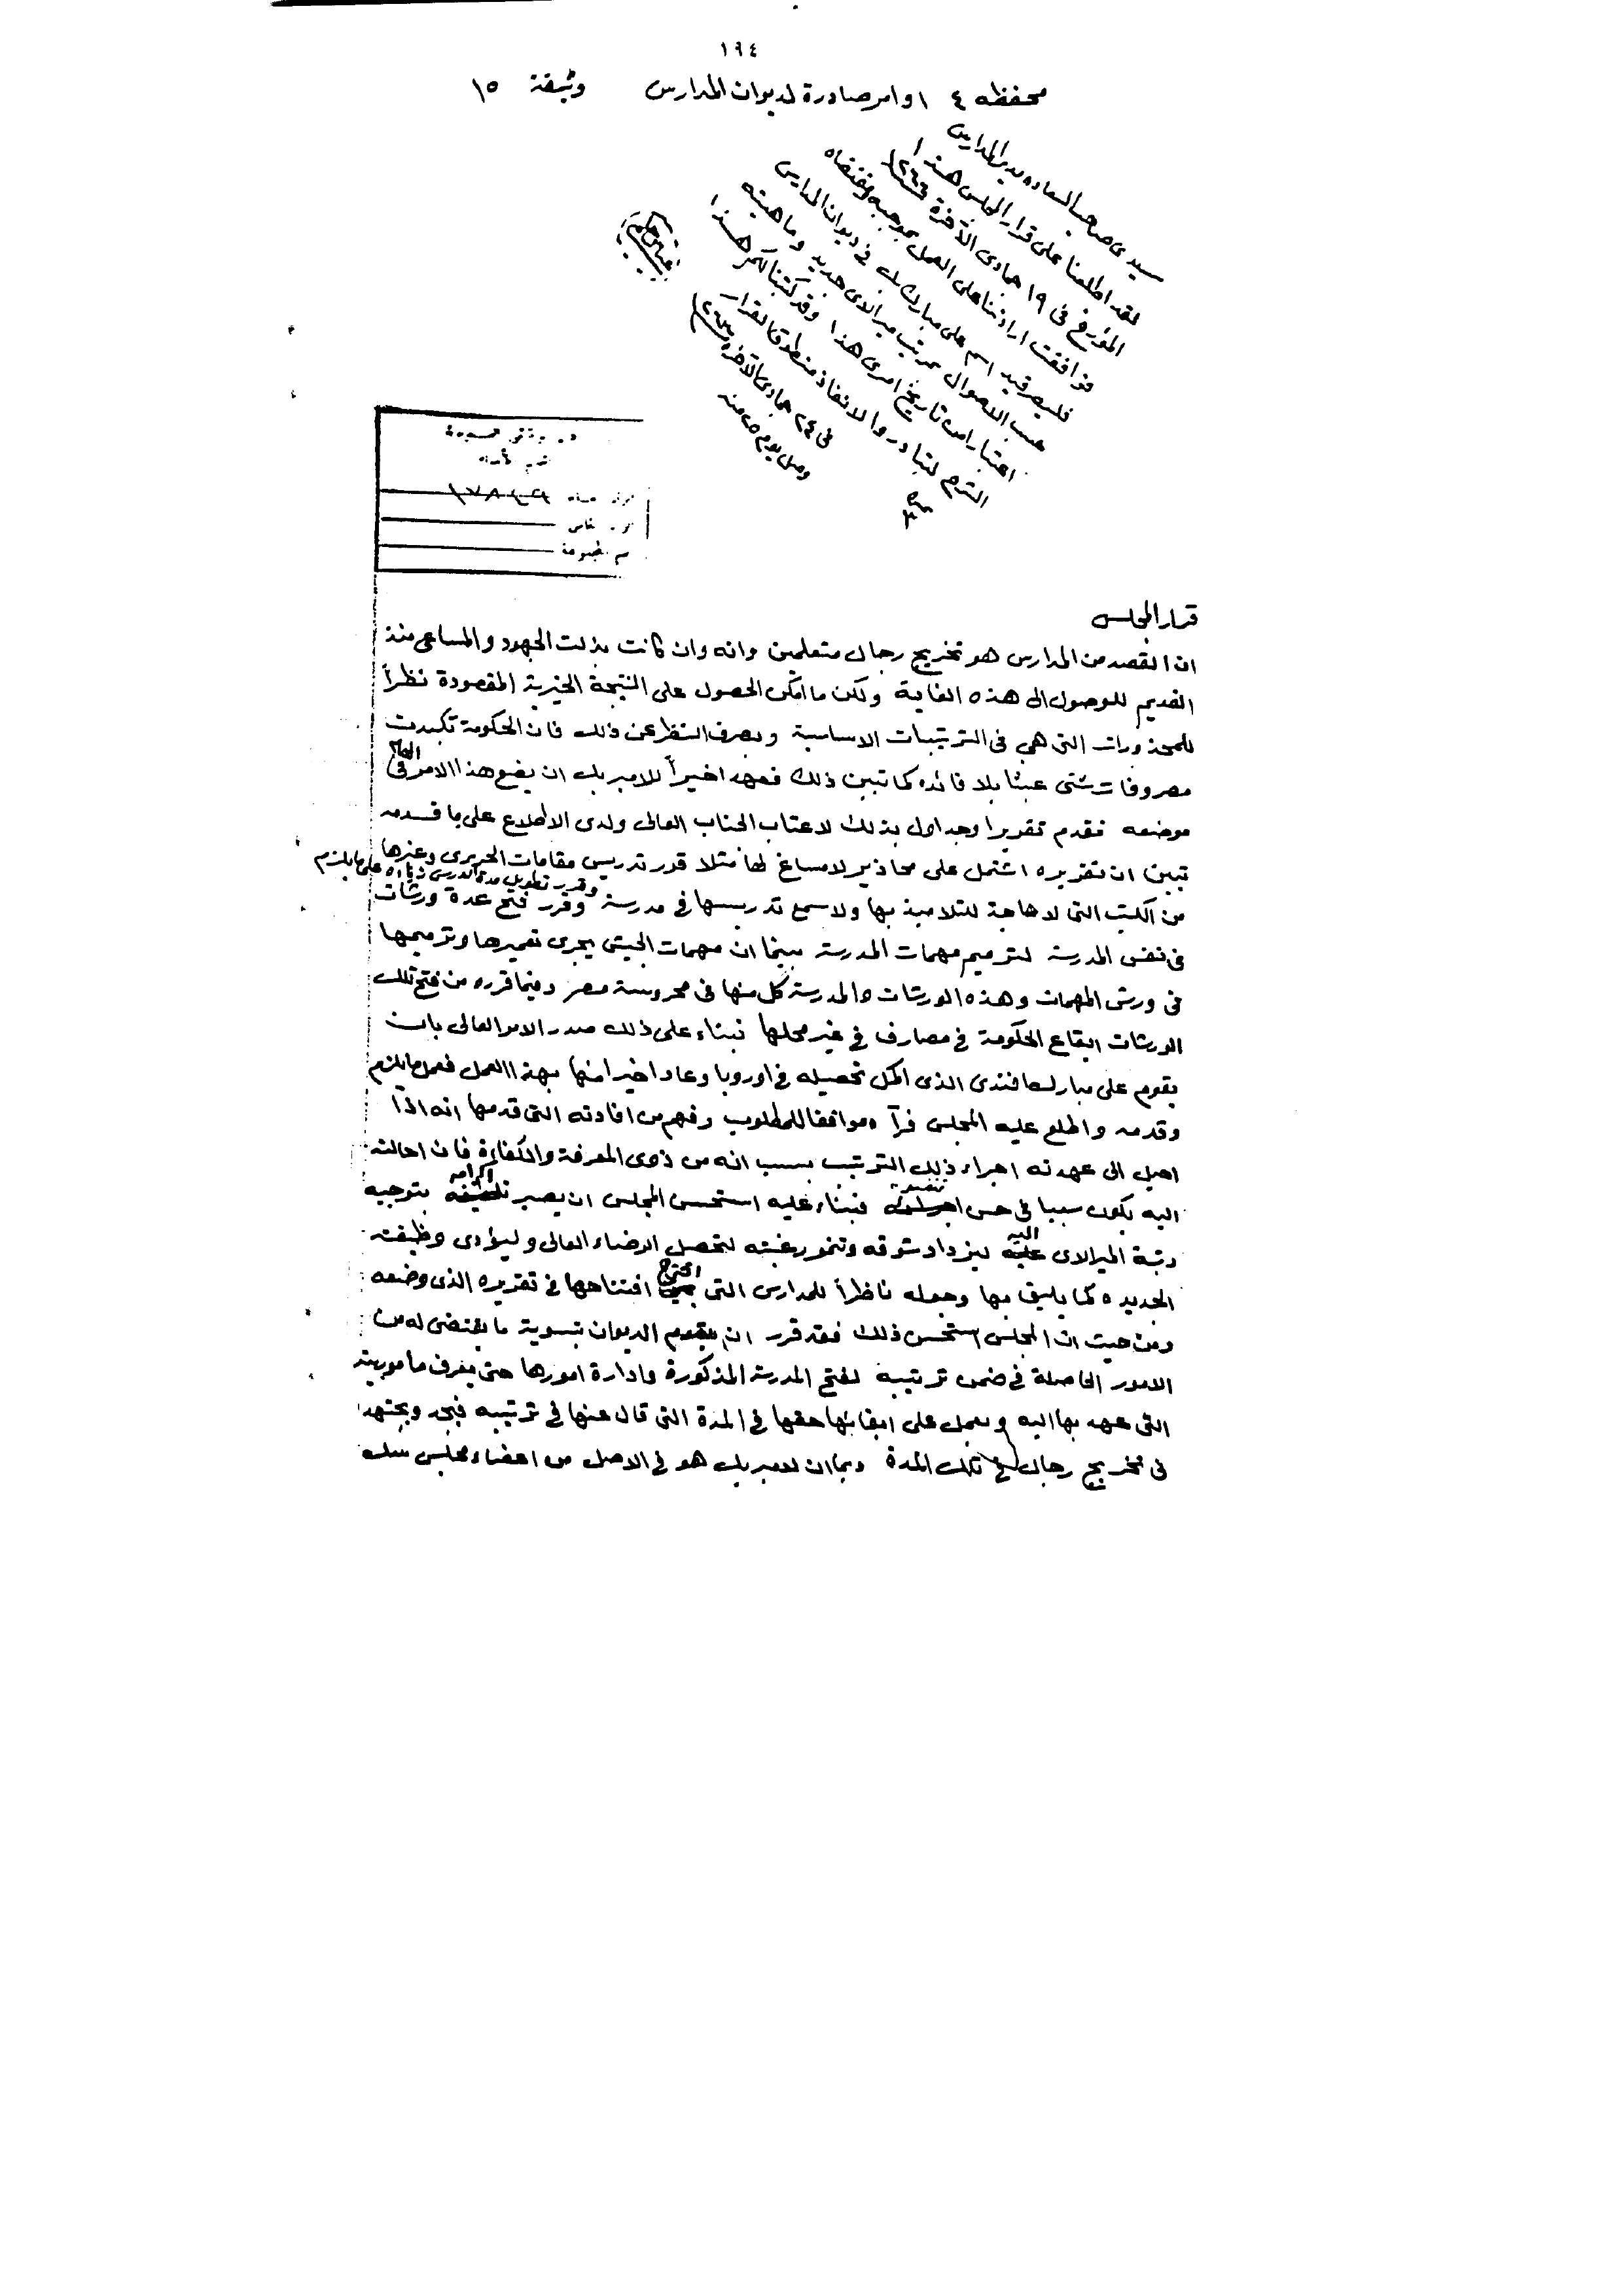 ١٩٤
محفظه ٤ اوامر صادرة لديوان المدارس وثيقة ١٥
سيدى صاحب السعاده مدير المدارس
لقد اطلعنا على قرار المجلس هذا
المؤرخ فى ١٩ جمادى الآخرة
فوافقت ارادتنا على العمل بموجبه ومقتضاه
فليصر قيد اسم على مبارك بك فى ديوان المدارس
حسب الاصول بمرتب ميرالاى جديد وماهيته
اعتبارا من تاريخ امرى هذا وقد كتبنا لكم هذا
لتبادروا لانفاذ منطوق القرار
فى ٢٤ جمادى الآخره
وصل يوم ٢٥ منه
قرار المجلس
ان القصد من المدارس هو تخريج رجال متعلمين وانه وان كانت بذلت الجهود والمساعى منذ
القديم للوصول الى هذه الغاية ولكن ما امكن الحصول على النتيجة الخيرية المقصودة نظراً
للمحذورات التى هى فى الترتيبات الاساسية وبصرف النظر عن ذلك فان الحكومة تكبدت
مصروفات شتى عبثا بلا فائده كما تبين ذلك فعهد اخيراً للامير بك ان يضع هذا الامر الهام فى
موضعه فقدم تقريرا وجداول بذلك لاعتاب الجناب العالى ولدى الاطلاع على ما قدمه
تبين ان تقريره اشتمل على محاذير لامساغ لها فمثلا قدر تدريس مقامات الحريرى وغيرها
من الكتب التى لا حاجة للتلاميذ بها ولا سمع تدريسها فى مدرسة وقرر تطويل مدة الدرس زياده على ما يلزم وقرر فتح عدة ورشات
فى نفس المدرسة لترميم مهمات المدرسة بينما ان مهمات الجيش يجرى تعميرها وترميمها
فى ورش المهمات وهذه الورشات والمدرسة كل منها فى محروسة مصر وفيما قرره من فتح تلك
الورشات ايقاع الحكومة فى مصارف فى غير محلها فبناء على ذلك صدر الامر العالى بان
يقوم على مبارك افندى الذى اكمل تحصيله فى اوروبا وعاد اخيرا منها بهذا العمل فعمل ما يلزم
وقدمه واطلع عليه المجلس فرآه موافقا للمطلوب وفهم من افادته التى قدمها انه اذا
احيل الى عهدته اجراء ذلك الترتيب بسبب انه من ذوى المعرفة والكفاءة فان احالته
اليه يكون سببا فى حسن تنفيذه فبناء عليه استحسن المجلس ان يصير اكرامه بتوجيه
رتبة الميرالاى اليه ليزداد شوقه وتنمو رغبته لتحصيل الرضاء العالى وليؤدى وظيفته
الجديده كما يليق بها وجعله ناظراً للمدارس التى اقترح افتتاحها فى تقريره الذى وضعه
ومن حيث ان المجلس استحسن ذلك فقد قرر ان يقوم الديوان بتسوية ما يقتضى له من
الامور الحاصلة فى ضمن ترتيبه لفتح المدرسة المذكورة وادارة امورها حتى يعرف ماموريته
التى عهد بها اليه ويعمل على ايفائها حقها فى المدة التى قال عنها فى ترتيبه فيجد ويجتهد
فى تخريج رجال فى تلك المدة وبما ان لامير بك هو فى الاصل من اعضاء مجلس